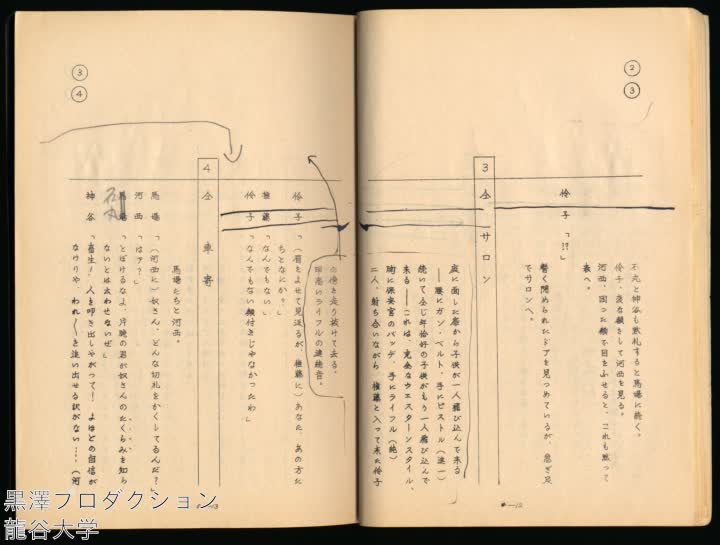 ②
③
石丸と神谷も黙礼すると馬場に続く。
伶子、変な顔をして河西を見る。
河西、困った様で目をふせると、これも黙って
表へ。
伶子「!?」
暫く閉められたドアを見つめているが、急ぎ足
でサロンへ。
3 仝 サロン
庭に面した窓から子供が一人飛び込んで来る
――腰にガン・ベルト、手にピストル(進一)
続いて仝じ年恰好の子供がもう一人飛び込んで
来る――これは、完全なウエスターンスタイル、
胸に保安官のバッヂ、手にライフル(純)
二人、射ち合いながら、権藤と入って来た伶子
2―12
③
④
の傍を走り抜けて去る。
ライフルの連続音。
伶子「(眉をよせて見送るが、権藤に)あなた、あの方た
ちとなにか?」
権藤「なんでもない」
伶子「なんでもない顔付きじゃなかったわ」
4 仝 車寄
馬場たちと河西。
馬場「(河西に)奴さん、どんな切札をかくしてるんだ?」
河西「はァ?」
石丸
馬場「とぼけるなよ、片腕の君が奴さんのたくらみを知ら
ないとは云わせないぜ」
神谷「畜生!人を叩き出しやがって! よほどの自信が
なけりゃ、われ〱を追い出せる訳がない…(河
13
黒澤プロダクション
龍谷大学